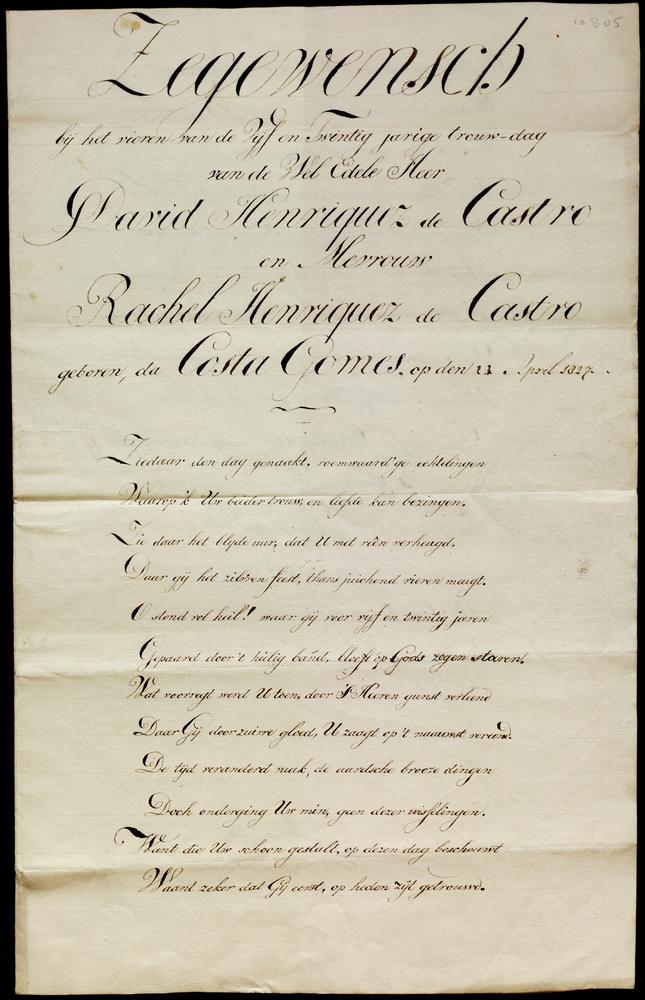 10805
Zegewensch
bij het vieren van de Vijf en Twintig jarige trouw-dag
van de Wel Edele Heer
David Henriquez de Castro
en Mevrouw
Rachel Henriquez de Castro
geboren, da Costa Gomes. op den 23. April 1827.
Ziedaar den dag genaakt, roemwaard'ge echtelingen
Waarop 'k Uw beider trouw, en liefde kan bezingen.
Zie daar het blijde uur, dat U met reên verheugd,
Daar gij het zilv'ren feest, thans juichend vieren meugt.
O stond vol heil! waar gij voor vijf en twintig jaren
Gepaard door 't heilig band, bleeft op Gods zegen staren.
Wat voorregt werd U toen, door 's Heeren gunst verleend
Daar Gij door zuivre gloed, U zaagt op 't naauwst vereend.
De tijd veranderd vaak, de aardsche brooze dingen
Doch onderging Uw min, geen dezer wisselingen.
Want die Uw schoon gestalt, op dezen dag beschouwt
Waant zeker dat Gij eerst, op heden zijt getrouwd.